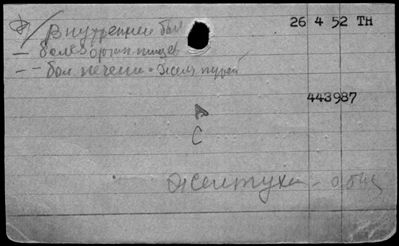 26 4 52 TH
Внутренние бол
— болез орган пищев
— — бол печени и желч путей
443987
А
С
Желтуха — общ